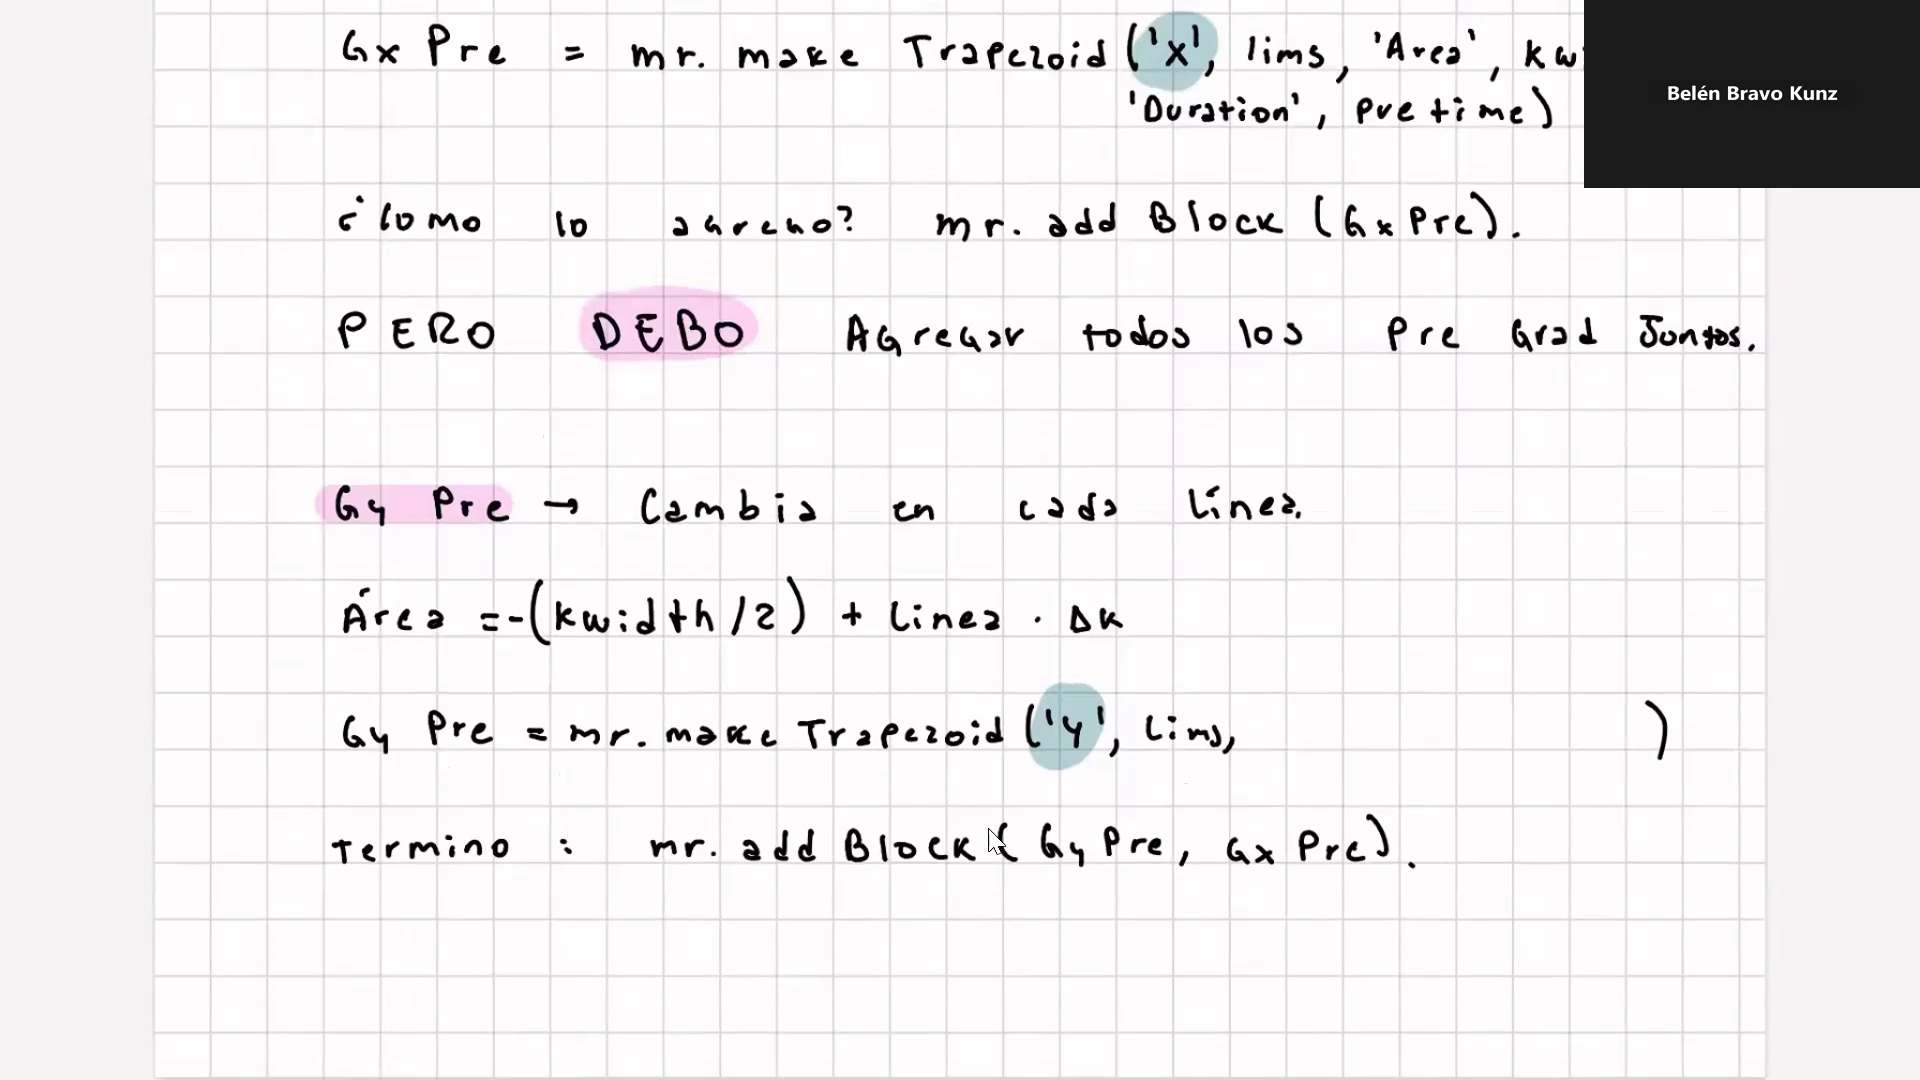 Gx Pre = mr. make Trapezoid ('x', lims, 'Area', kw
'Duration', pretime)
Belén Bravo Kunz
¿Como lo agrego? mr. add Block (Gx Pre).
PERO DEBO Agregar todos los Pre Grad Juntos.
Gy Pre → Cambia en cada línea.
Área = -(kwidth/2) + linea · Δk
Gy Pre = mr. make Trapezoid ('y', lims, )
termino : mr. add Block (Gy Pre, Gx Pre).